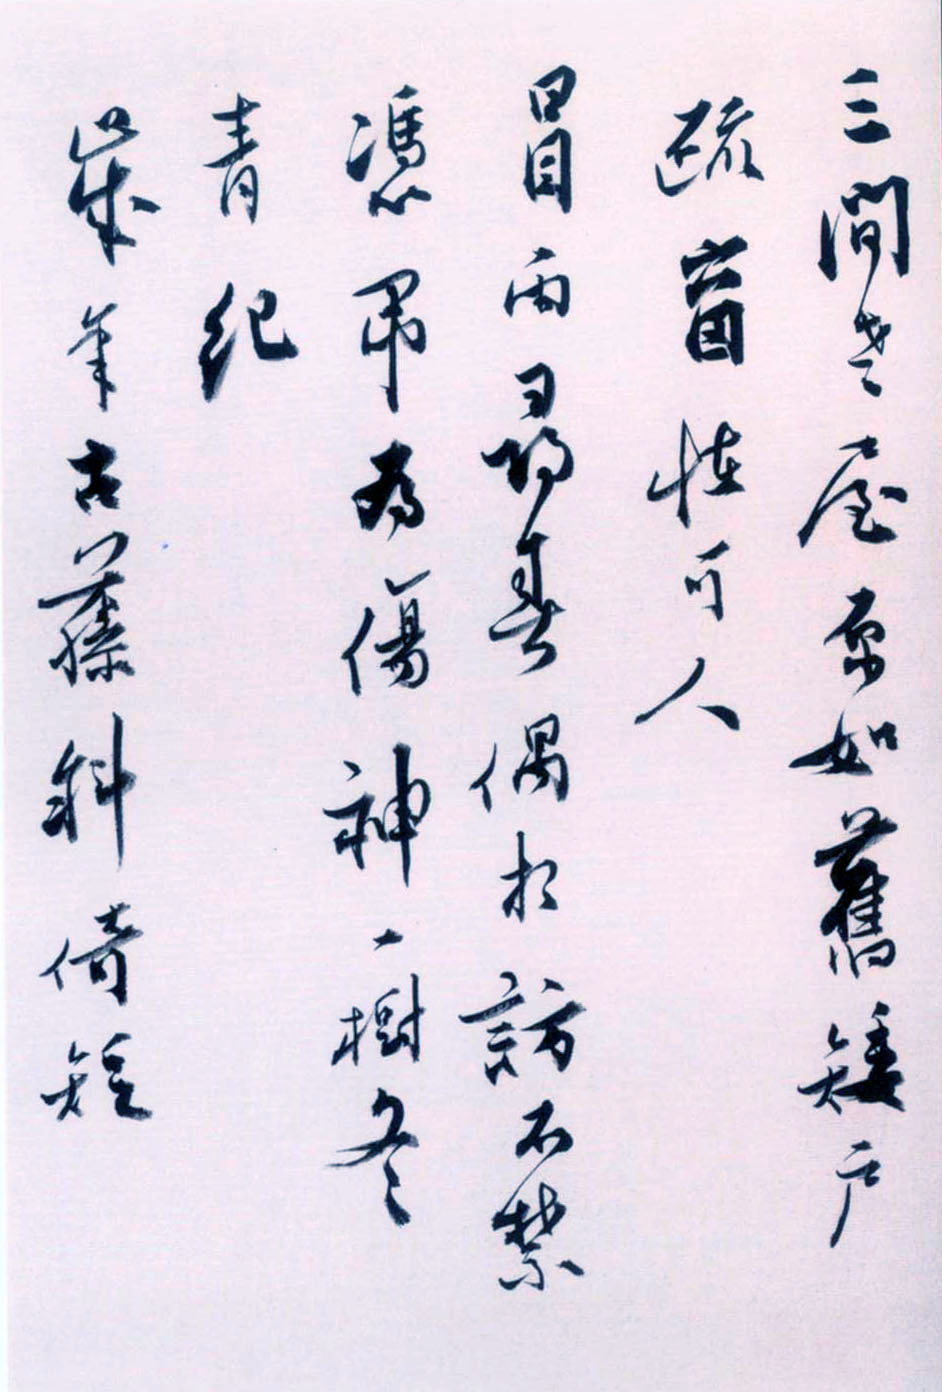 三間老屋原如舊矮戶
疏窗恠可人
冒雨尋春偶相訪不禁
憑弔為傷神一樹冬
青紀
歲年古藤斜倚短